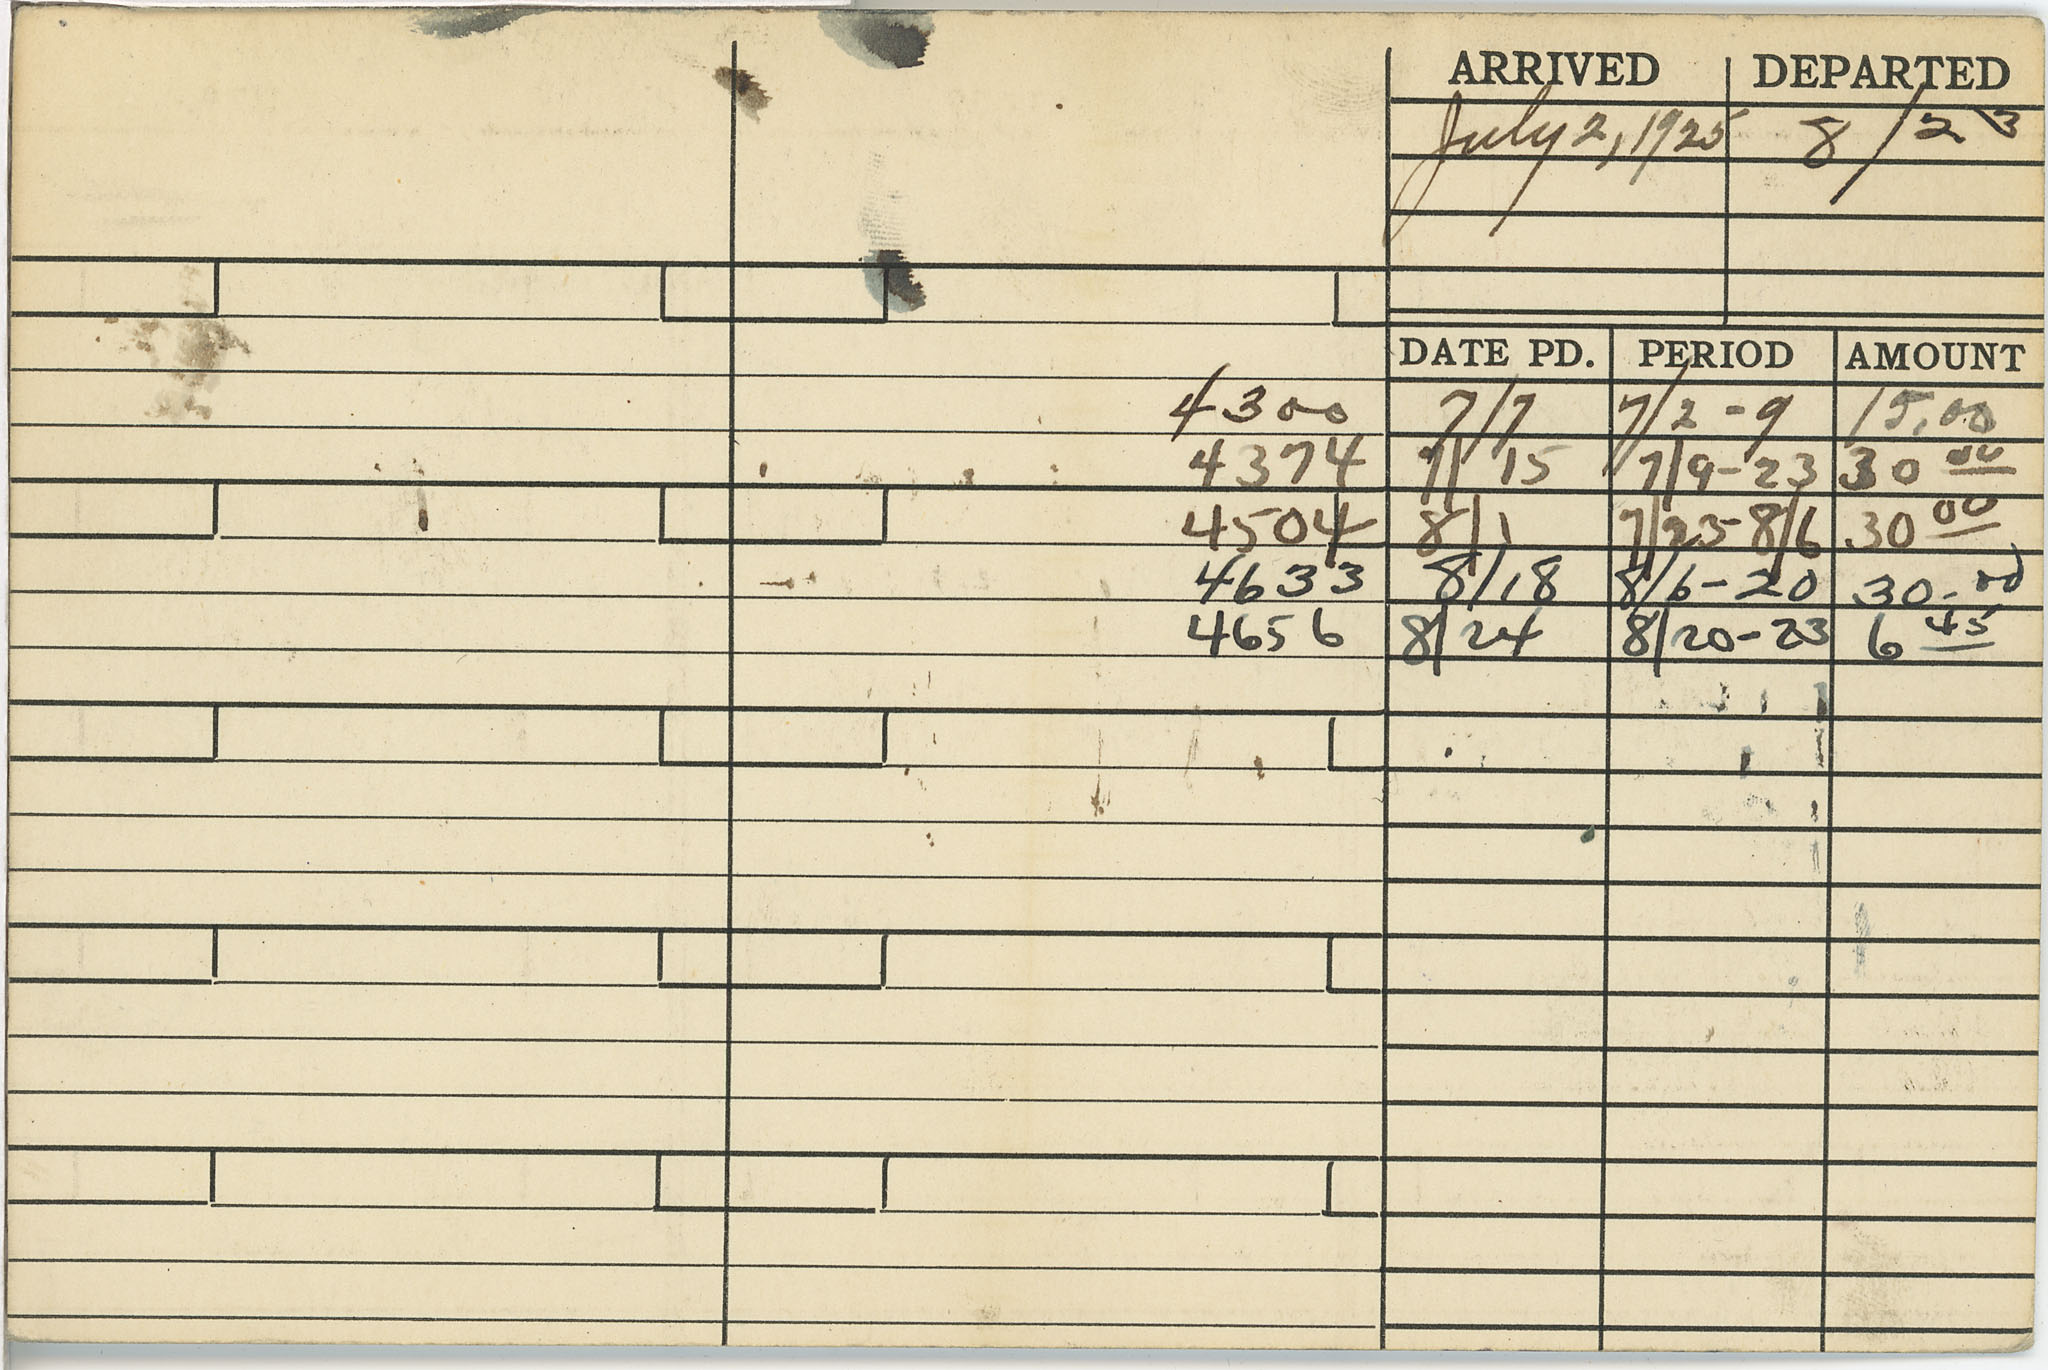 ARRIVED DEPARTED
July 2, 1925 8/23
DATE PD. PERIOD AMOUNT
4300 7/7 7/2-9 15.00
4374 7/15 7/9-23 30 00
4504 8/1 7/23-8/6 30 00
4633 8/18 8/6-20 30.00
4656 8/24 8/20-23 6 45